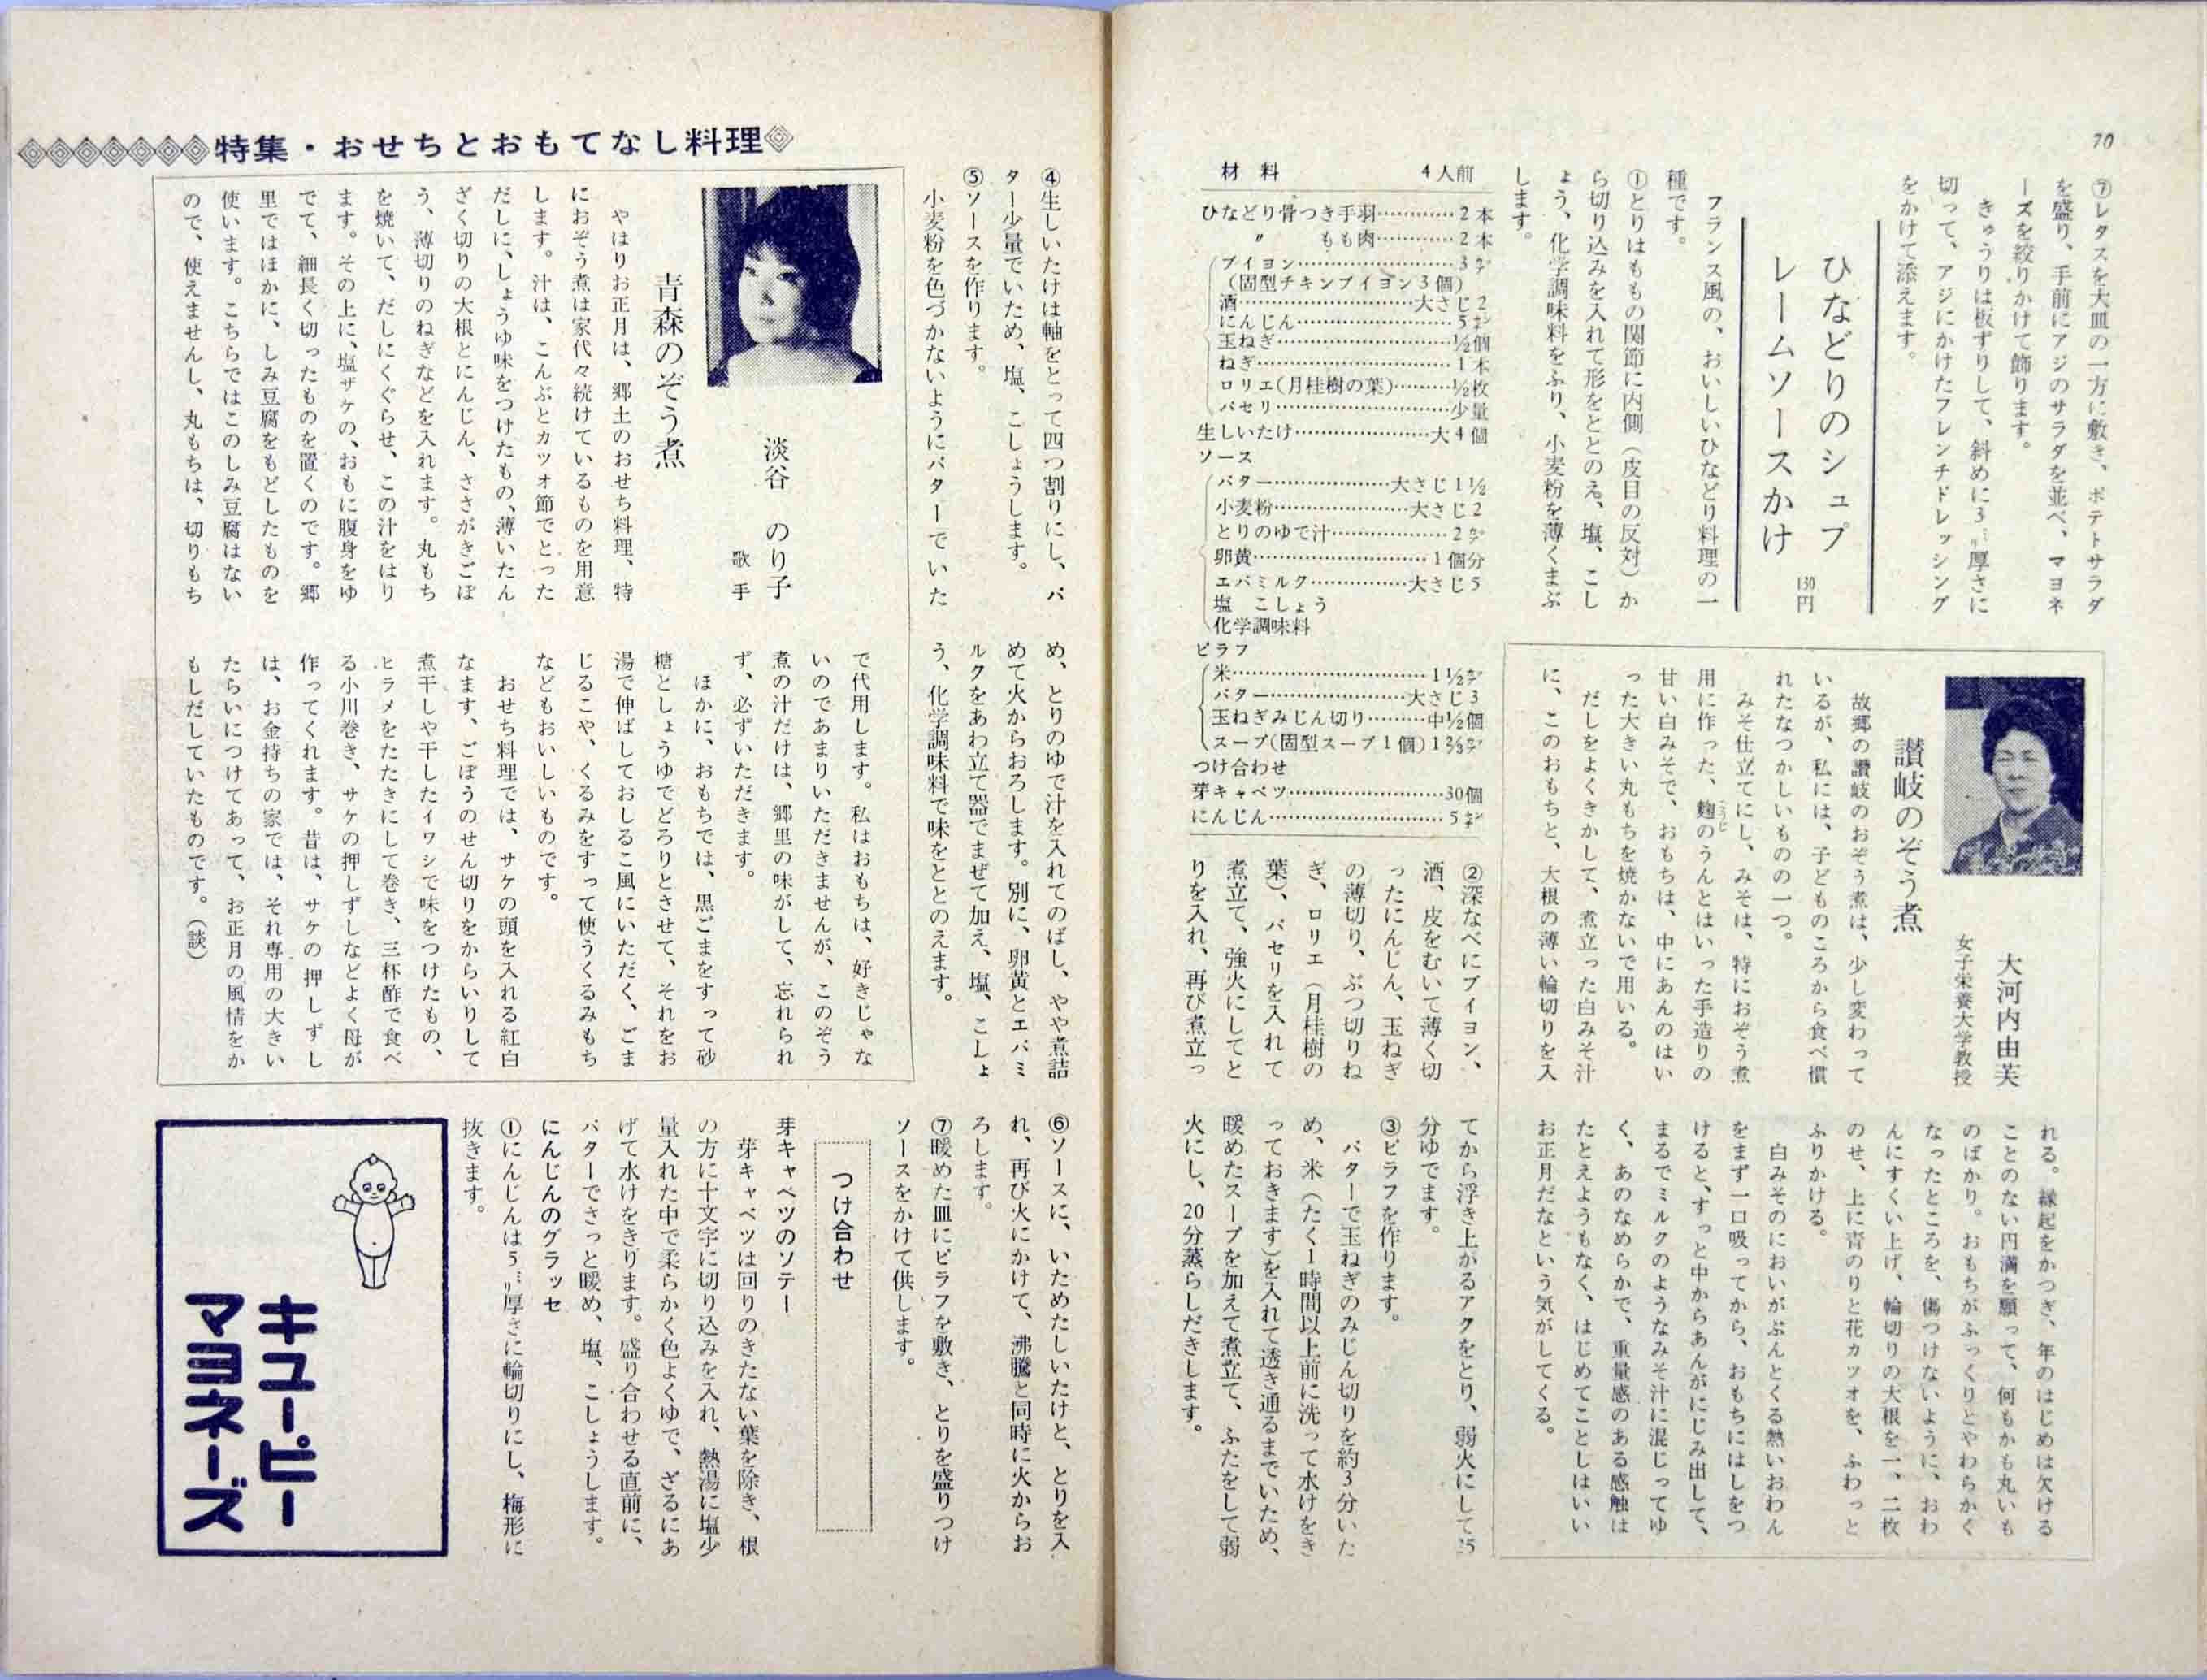 70
⑦レタスを大皿の一方に敷き、ポテトサラダ
を盛り、手前にアジのサラダを並べ、マヨネ
ーズを絞りかけて飾ります。
きゅうりは板ずりして、斜めに3㍉厚さに
切って、アジにかけたフレンチドレッシング
をかけて添えます。
ひなどりのシュプ
レームソースかけ
130円
フランス風の、おいしいひなどり料理の一
種です。
①とりはももの関節に内側（皮目の反対）か
ら切り込みを入れて形をととのえ、塩、こし
ょう、化学調味料をふり、小麦粉を薄くまぶ
します。
材料 4人前
ひなどり骨つき手羽…………2本
〃 もも肉…………2本
ブイヨン……………………3㌍
（固型チキンブイヨン3個）
酒……………………大さじ2
にんじん……………………5㌢
玉ねぎ……………………½個
ねぎ……………………1本
ロリエ（月桂樹の葉）………½枚
パセリ……………………少量
生しいたけ…………………大4個
ソース
バター………………大さじ1½
小麦粉…………………大さじ2
とりのゆで汁………………2㌍
卵黄……………………1個分
エバミルク……………大さじ5
塩 こしょう
化学調味料
ピラフ
米…………………………1½㌍
バター…………………大さじ3
玉ねぎみじん切り………中½個
スープ（固型スープ1個）1⅔㌍
つけ合わせ
芽キャベツ……………………30個
にんじん………………………5㌢
②深なべにブイヨン、
酒、皮をむいて薄く切
ったにんじん、玉ねぎ
の薄切り、ぶつ切りね
ぎ、ロリエ（月桂樹の
葉）、パセリを入れて
煮立て、強火にしてと
りを入れ、再び煮立っ
てから浮き上がるアクをとり、弱火にして25
分ゆでます。
③ピラフを作ります。
バターで玉ねぎのみじん切りを約3分いた
め、米（たく1時間以上前に洗って水けをき
っておきます）を入れて透き通るまでいため、
暖めたスープを加えて煮立て、ふたをして弱
火にし、20分蒸らしだきします。
讃岐のぞう煮
大河内由芙
女子栄養大学教授
故郷の讃岐のおぞう煮は、少し変わって
いるが、私には、子どものころから食べ慣
れたなつかしいものの一つ。
みそ仕立てにし、みそは、特におぞう煮
用に作った、麹のうんとはいった手造りの
こうじ
甘い白みそで、おもちは、中にあんのはい
った大きい丸もちを焼かないで用いる。
だしをよくきかして、煮立った白みそ汁
に、このおもちと、大根の薄い輪切りを入
れる。縁起をかつぎ、年のはじめは欠ける
ことのない円満を願って、何もかも丸いも
のばかり。おもちがふっくりとやわらかく
なったところを、傷つけないように、おわ
んにすくい上げ、輪切りの大根を一、二枚
のせ、上に青のりと花カツオを、ふわっと
ふりかける。
白みそのにおいがぷんとくる熱いおわん
をまず一口吸ってから、おもちにはしをつ
けると、すっと中からあんがにじみ出して、
まるでミルクのようなみそ汁に混じってゆ
く、あのなめらかで、重量感のある感触は
たとえようもなく、はじめてことしはいい
お正月だなという気がしてくる。
特集・おせちとおもてなし料理
④生しいたけは軸をとって四つ割りにし、バ
ター少量でいため、塩、こしょうします。
⑤ソースを作ります。
小麦粉を色づかないようにバターでいた
め、とりのゆで汁を入れてのばし、やや煮詰
めて火からおろします。別に、卵黄とエバミ
ルクをあわ立て器でまぜて加え、塩、こしょ
う、化学調味料で味をととのえます。
⑥ソースに、いためたしいたけと、とりを入
れ、再び火にかけて、沸騰と同時に火からお
ろします。
⑦暖めた皿にピラフを敷き、とりを盛りつけ
ソースをかけて供します。
つけ合わせ
芽キャベツのソテー
芽キャベツは回りのきたない葉を除き、根
の方に十文字に切り込みを入れ、熱湯に塩少
量入れた中で柔らかく色よくゆで、ざるにあ
げて水けをきります。盛り合わせる直前に、
バターでさっと暖め、塩、こしょうします。
にんじんのグラッセ
①にんじんは5㍉厚さに輪切りにし、梅形に
抜きます。
青森のぞう煮
淡谷 のり子
歌手
やはりお正月は、郷土のおせち料理、特
におぞう煮は家代々続けているものを用意
します。汁は、こんぶとカツオ節でとった
だしに、しょうゆ味をつけたもの、薄いたん
ざく切りの大根とにんじん、ささがきごぼ
う、薄切りのねぎなどを入れます。丸もち
を焼いて、だしにくぐらせ、この汁をはり
ます。その上に、塩ザケの、おもに腹身をゆ
でて、細長く切ったものを置くのです。郷
里ではほかに、しみ豆腐をもどしたものを
使います。こちらではこのしみ豆腐はない
ので、使えませんし、丸もちは、切りもち
で代用します。私はおもちは、好きじゃな
いのであまりいただきませんが、このぞう
煮の汁だけは、郷里の味がして、忘れられ
ず、必ずいただきます。
ほかに、おもちでは、黒ごまをすって砂
糖としょうゆでどろりとさせて、それをお
湯で伸ばしておしるこ風にいただく、ごま
じるこや、くるみをすって使うくるみもち
などもおいしいものです。
おせち料理では、サケの頭を入れる紅白
なます、ごぼうのせん切りをからいりして
煮干しや干したイワシで味をつけたもの、
ヒラメをたたきにして巻き、三杯酢で食べ
る小川巻き、サケの押しずしなどよく母が
作ってくれます。昔は、サケの押しずし
は、お金持ちの家では、それ専用の大きい
たらいにつけてあって、お正月の風情をか
もしだしていたものです。（談）
キユーピー
マヨネーズ